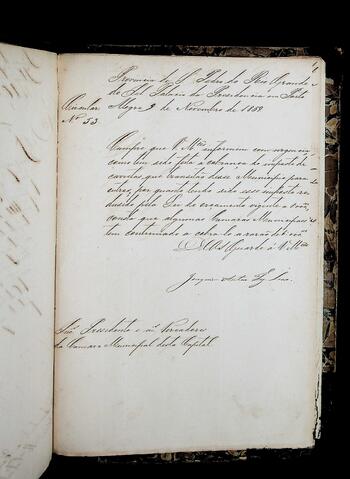 Provincia de S. Pedro do Rio Grande
do Sul Palacio da Presidencia em Porto
Circular Alegre 9 de Novembro de 1859
Nº 53
Cumpre que V. Mces informem com urgencia
como tem sido feita a cobrança do imposto de
carretas que transitão desse Municipio para
outros, por quanto tendo sido esse imposto re
duzido pela Lei do orçamento vigente a
consta que algumas Camaras Municipaes
tem continuado a cobra-lo a razão de
Deos Guarde á V. Mces
Joaquim Antão
Snres Presidente e mais Vereadores
da Camara Municipal desta Capital